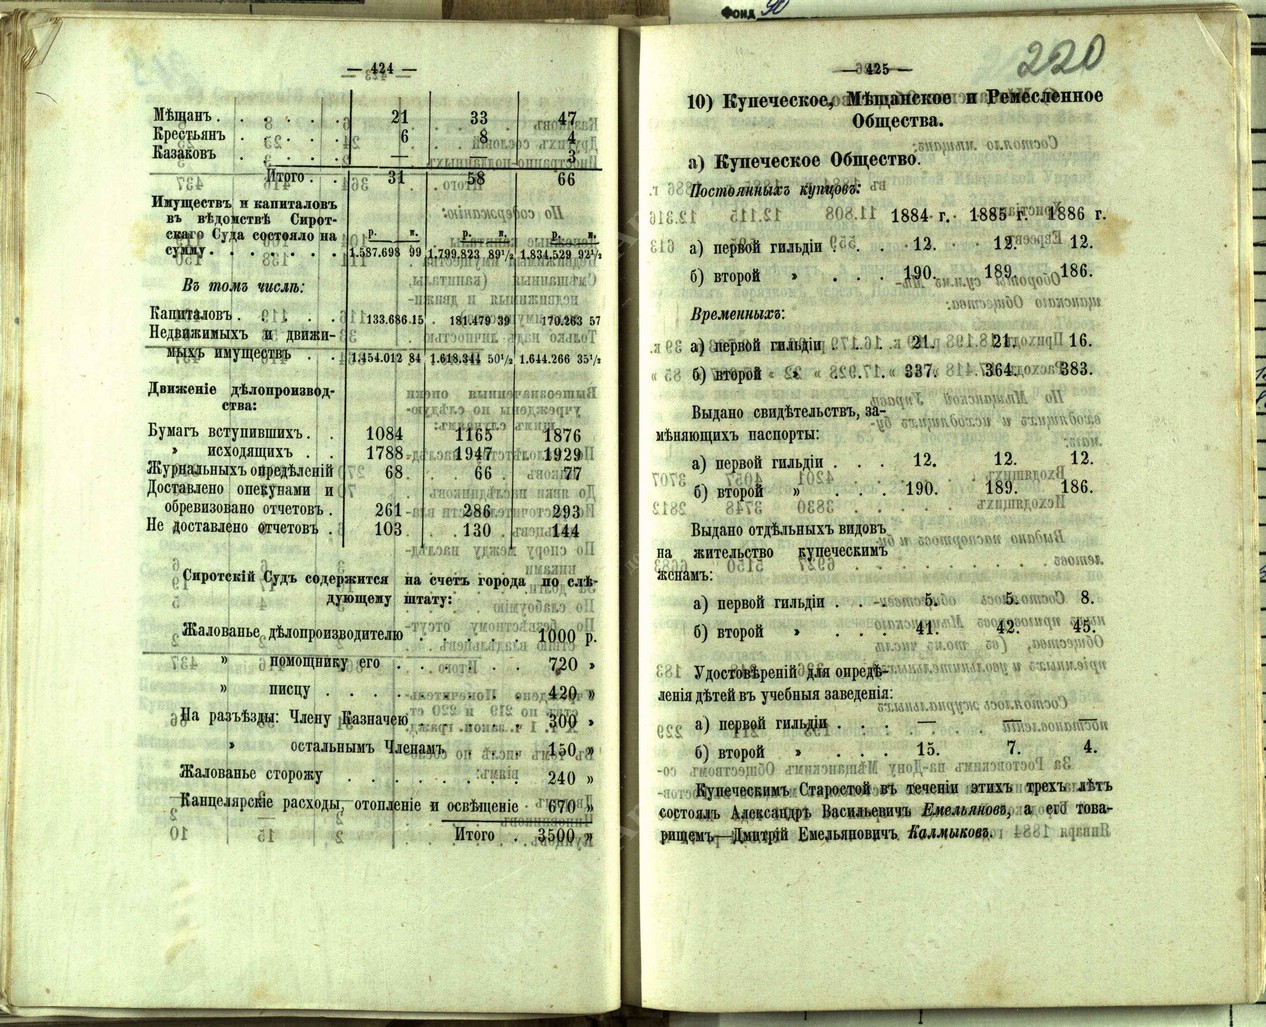 Фонд 90
— 424 —
Мѣщан. . . . . . . 21 33 47
Крестьянъ . . . . . 6 8 4
Казаковъ . . . . . — — 3
Итого . . 31 58 66
Имуществъ и капиталовъ
въ вѣдомствѣ Сирот-
скаго Суда состояло на р. к. р. к. р. к.
сумму . . . . . . . 1.587.698 99 1.799.823 89½ 1.834.529 92½
Въ томъ числѣ:
Капиталовъ . . . . . 133.686.15 181.479 39 170.263 57
Недвижимыхъ и движи-
мыхъ имуществъ . . 1.454.012 84 1.618.344 50½ 1.644.266 35½
Движеніе дѣлопроизвод-
ства:
Бумагъ вступившихъ . . 1084 1165 1876
» исходящихъ . . 1788 1947 1929
Журнальныхъ опредѣленій 68 66 77
Доставлено опекунами и
обревизовано отчетовъ . 261 286 293
Не доставлено отчетовъ . 103 130 144
Сиротскій Судъ содержится на счетъ города по слѣ-
дующему штату:
Жалованье дѣлопроизводителю . . . . . . 1000 р.
» помощнику его . . . . . . . 720 »
» писцу . . . . . . . . . . 420 »
На разъѣзды: Члену Казначею . . . . . . 300 »
» остальнымъ Членамъ . . . . 150 »
Жалованье сторожу . . . . . . . . . 240 »
Канцелярскіе расходы, отопленіе и освѣщеніе . 670 »
Итого . 3500 »
220
— 425 —
10) Купеческое, Мѣщанское и Ремесленное
Общества.
а) Купеческое Общество.
Постоянныхъ купцовъ:
1884 г. 1885 г. 1886 г.
а) первой гильдіи . . . 12. 12. 12.
б) второй » . . . 190. 189. 186.
Временныхъ:
а) первой гильдіи . . . . 21. 21. 16.
б) второй » . . . 337. 364. 383.
Выдано свидѣтельствъ, за-
мѣняющихъ паспорты:
а) первой гильдіи . . . 12. 12. 12.
б) второй » . . . 190. 189. 186.
Выдано отдѣльныхъ видовъ
на жительство купеческимъ
женамъ:
а) первой гильдіи . . . 5. 5. 8.
б) второй » . . . 41. 42. 45.
Удостовѣреній для опредѣ-
ленія дѣтей въ учебныя заведенія:
а) первой гильдіи . . . — — —
б) второй » . . . 15. 7. 4.
Купеческимъ Старостой въ теченіи этихъ трехъ лѣтъ
состоялъ Александръ Васильевичъ Емельяновъ, а его това-
рищемъ—Дмитрій Емельяновичъ Калмыковъ.